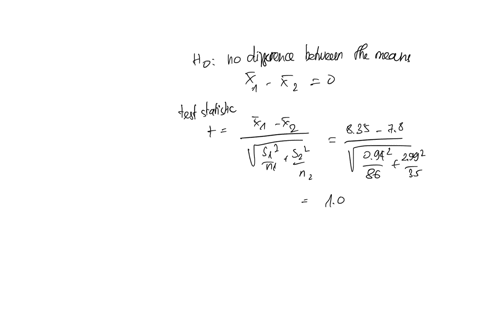 H0: no difference between the means
x̄1 - x̄2 = 0
test statistic
t = (x̄1 - x̄2) / √(s1²/n1 + s2²/n2) = (8.35 - 7.8) / √(0.94²/86 + 2.99²/35)
= 1.0